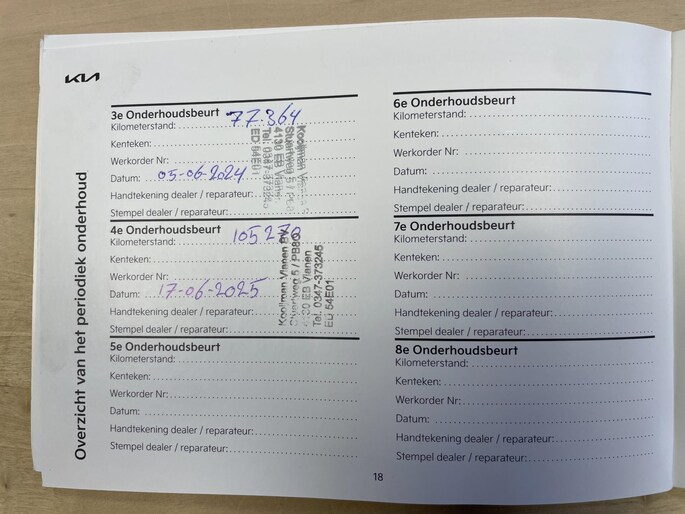 KIA
Overzicht van het periodiek onderhoud
3e Onderhoudsbeurt
Kilometerstand: 77.864
Kenteken:
Werkorder Nr:
Datum: 05-06-2024
Handtekening dealer / reparateur:
Stempel dealer / reparateur:
Kooijman Vianen
Stuartweg 5 /
4130 EB Vianen
Tel. 0347-373245
ED 54E01
4e Onderhoudsbeurt
Kilometerstand: 105270
Kenteken:
Werkorder Nr:
Datum: 17-06-2025
Handtekening dealer / reparateur:
Stempel dealer / reparateur:
Kooijman Vianen BV
Stuartweg 5 / PB80
4130 EB Vianen
Tel. 0347-373245
ED 54E01
5e Onderhoudsbeurt
Kilometerstand:
Kenteken:
Werkorder Nr:
Datum:
Handtekening dealer / reparateur:
Stempel dealer / reparateur:
6e Onderhoudsbeurt
Kilometerstand:
Kenteken:
Werkorder Nr:
Datum:
Handtekening dealer / reparateur:
Stempel dealer / reparateur:
7e Onderhoudsbeurt
Kilometerstand:
Kenteken:
Werkorder Nr:
Datum:
Handtekening dealer / reparateur:
Stempel dealer / reparateur:
8e Onderhoudsbeurt
Kilometerstand:
Kenteken:
Werkorder Nr:
Datum:
Handtekening dealer / reparateur:
Stempel dealer / reparateur:
18